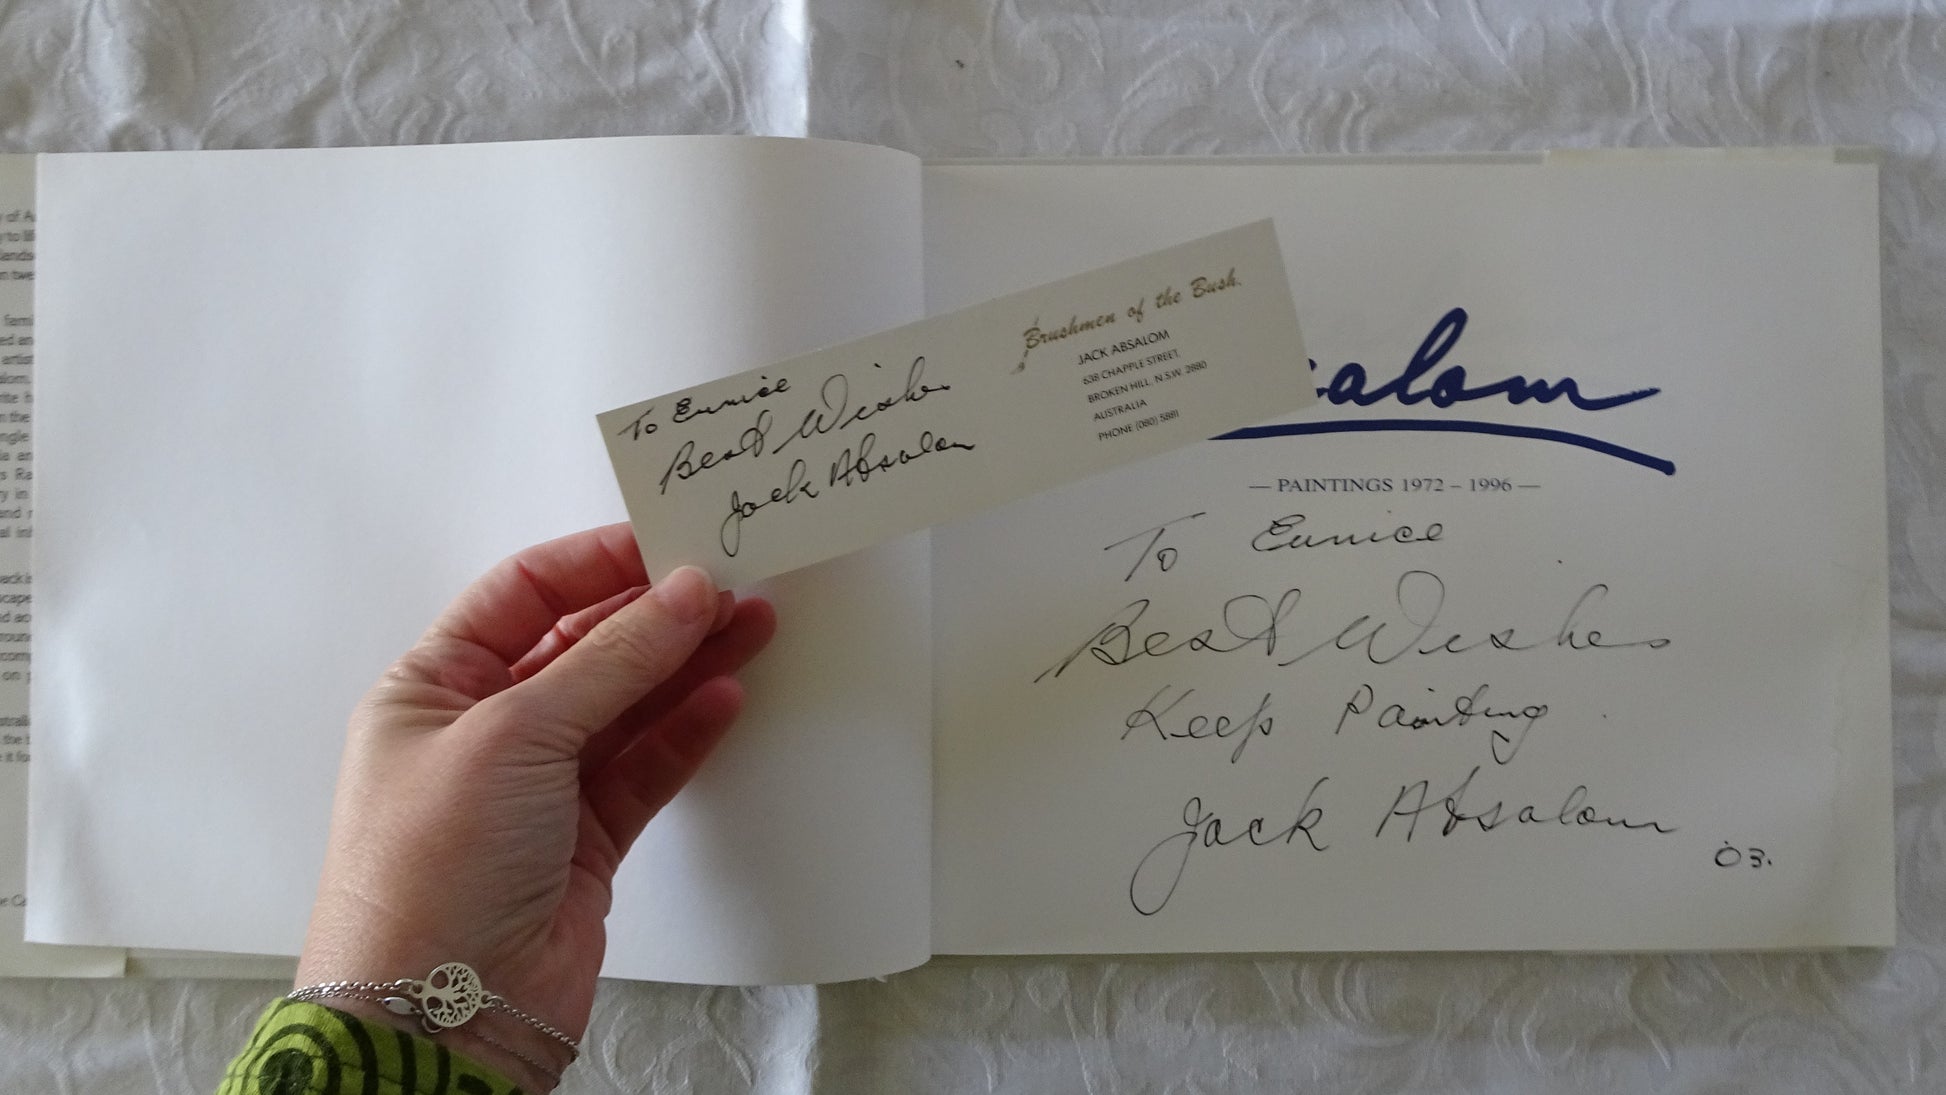 To Eunice
Best Wishes
Jack Absalom
Brushmen of the Bush.
JACK ABSALOM
638 CHAPPLE STREET,
BROKEN HILL, N.S.W. 2880
AUSTRALIA
PHONE (080) 5881
salom
— PAINTINGS 1972 – 1996 —
To Eunice
Best Wishes
Keep Painting.
Jack Absalom
03.